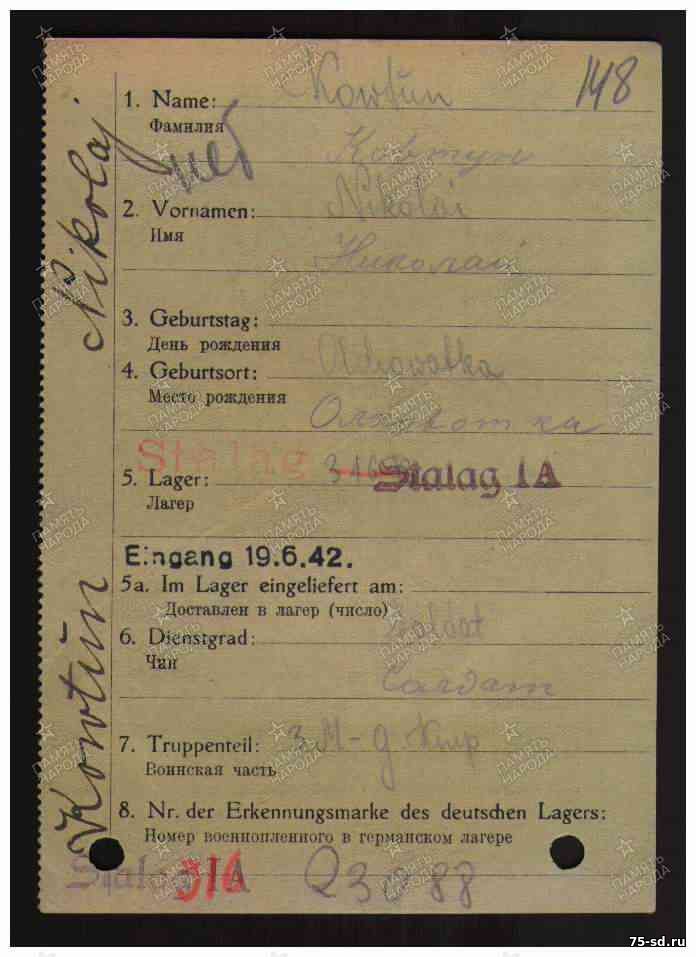 148
1. Name: Kowtun
Фамилия Ковтун
2. Vornamen: Nikolai
Имя Николай
3. Geburtstag:
День рождения
4. Geburtsort:
Место рождения
Stalag
5. Lager: Stalag 1A
Лагер
Eingang 19.6.42.
5a. Im Lager eingeliefert am:
Доставлен в лагер (число)
6. Dienstgrad: Soldat
Чин Салдат
7. Truppenteil: 3 M-g Kmp
Воинская часть
8. Nr. der Erkennungsmarke des deutschen Lagers:
Номер военнопленного в германском лагере
Stalag 316
Kowtun Nikolaj
ПАМЯТЬ НАРОДА
75-sd.ru